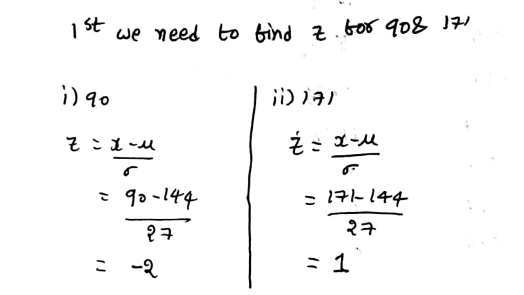 1st we need to find z for 90 & 171
i) 90
z = x-μ/σ
= 90-144/27
= -2
ii) 171
z = x-μ/σ
= 171-144/27
= 1